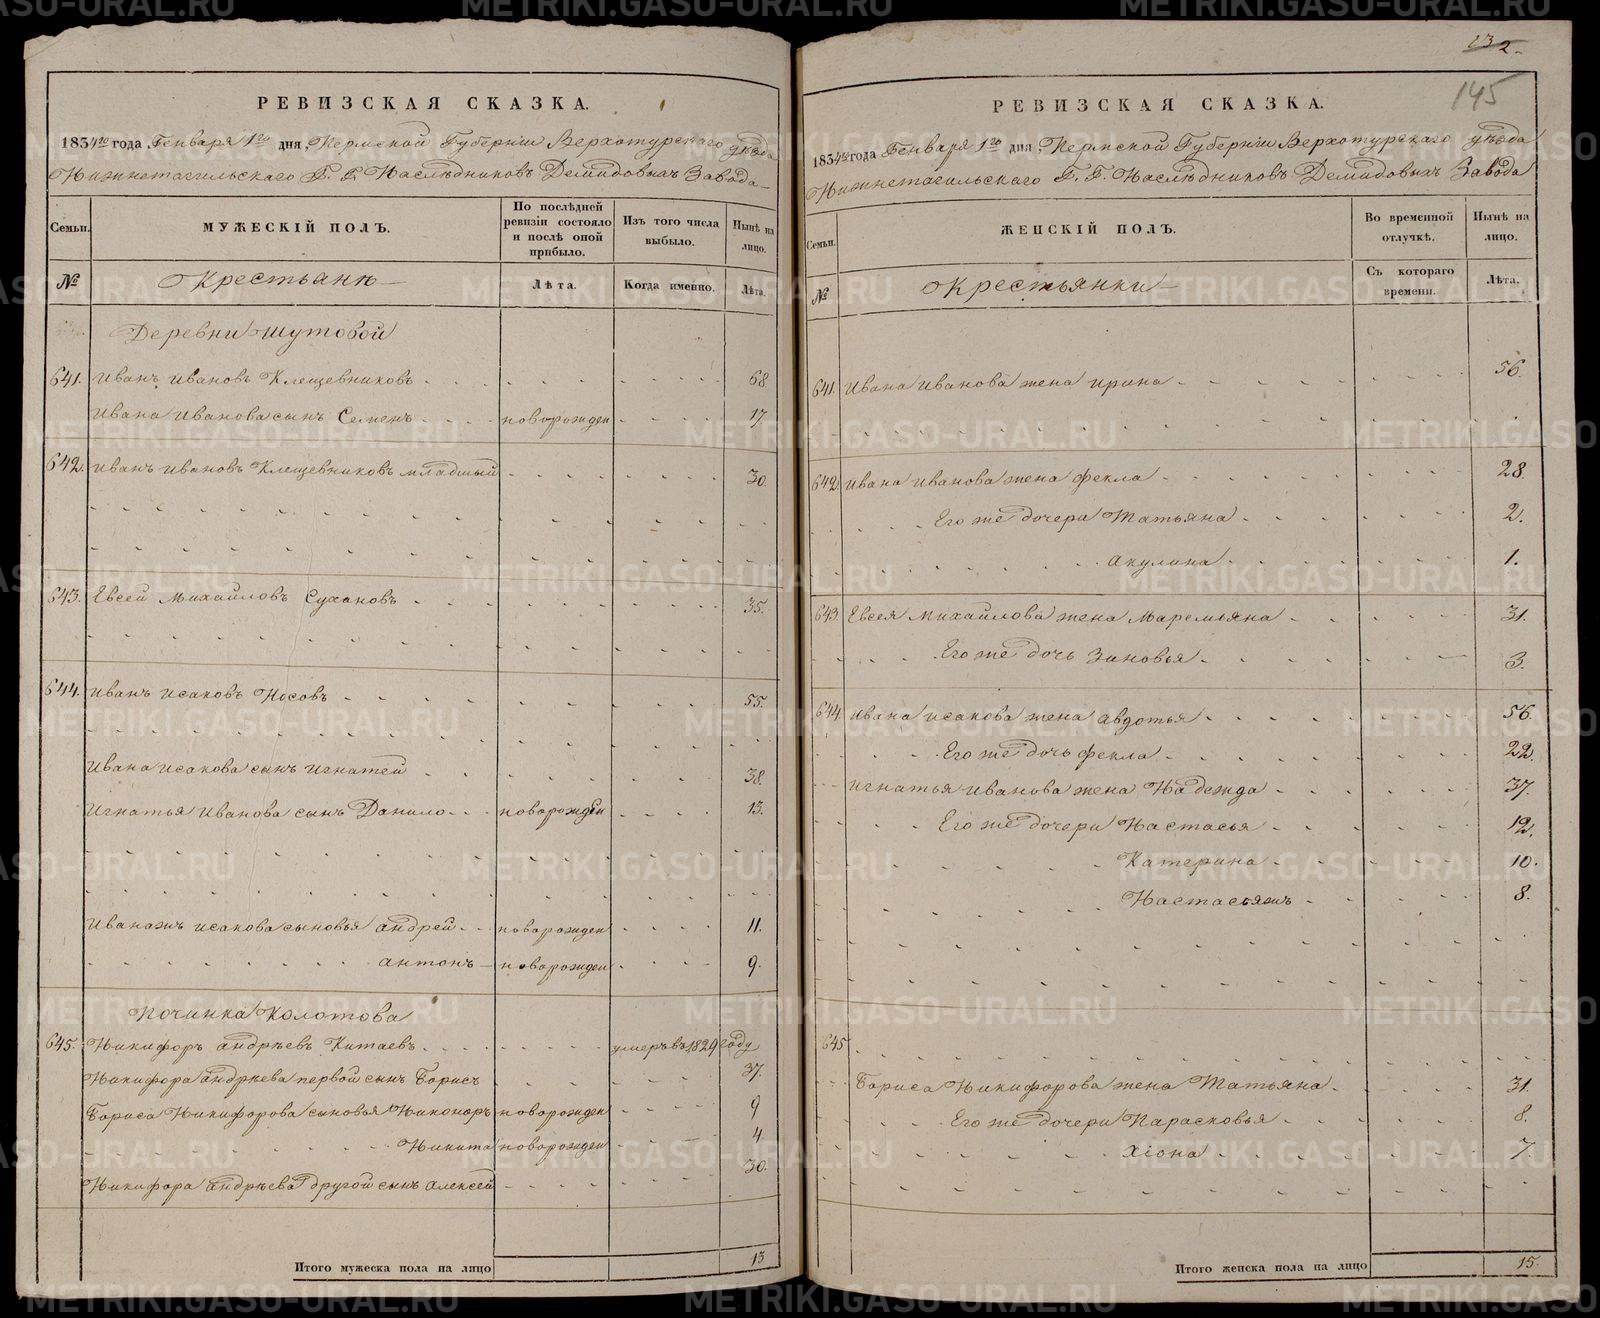 РЕВИЗСКАЯ СКАЗКА.
1834го года Генваря 1го дня, Пермской Губерніи Верхотурскаго уѣзда
Нижнетагильскаго Г. Г. Наслѣдниковъ Демидовыхъ Завода
Семьи.
МУЖЕСКІЙ ПОЛЪ.
По послѣдней ревизіи состояло и послѣ оной прибыло.
Изъ того числа выбыло.
Нынѣ на лицо.
№
Крестьяне
Лѣта.
Когда именно.
Лѣта.
Деревни Шутовой
641. Иванъ Ивановъ Клещевниковъ 68
Ивана Иванова сынъ Семенъ новорожден 17
642. Иванъ Ивановъ Клещевниковъ младшый 30.
643. Евсей Михайловъ Сухановъ 35.
644. Иванъ Исаковъ Носовъ 55.
Ивана Исакова сынъ Игнатей 38.
Игнатья Иванова сынъ Данило новорожден 13.
Иванажъ Исакова сыновья Андрей новорожден 11.
Антонъ новорожден 9.
Починка Колотова
645. Никифоръ Андрѣевъ Китаевъ умеръ въ 1829 году
Никифора Андрѣева первой сынъ Борисъ 37.
Бориса Никифорова сыновья Никоноръ новорожден 9
Никита новорожден 4.
Никифора Андрѣева другой сынъ Алексей 30.
Итого мужеска пола на лицо 13
132
145
РЕВИЗСКАЯ СКАЗКА.
1834го года Генваря 1го дня, Пермской Губерніи Верхотурскаго уѣзда
Нижнетагильскаго Г. Г. Наслѣдниковъ Демидовыхъ Завода
Семьи.
ЖЕНСКІЙ ПОЛЪ.
Во временной отлучкѣ.
Нынѣ на лицо.
№
Крестьянки
Съ котораго времени.
Лѣта.
641. Ивана Иванова жена Ирина 56.
642. Ивана Иванова жена Фекла 28
Его же дочери Татьяна 2.
Акулина 1.
643. Евсея Михайлова жена Маремьяна 31.
Его же дочь Зиновья 3.
644. Ивана Исакова жена Авдотья 56.
Его же дочь Фекла 22.
Игнатья Иванова жена Надежда 37.
Его же дочери Настасья 12.
Катерина 10.
Настасьяжъ 8.
645
Бориса Никифорова жена Татьяна 31
Его же дочери Парасковья 8.
Хіона 7
Итого женска пола на лицо 15.
METRIKI.GASO-URAL.RU